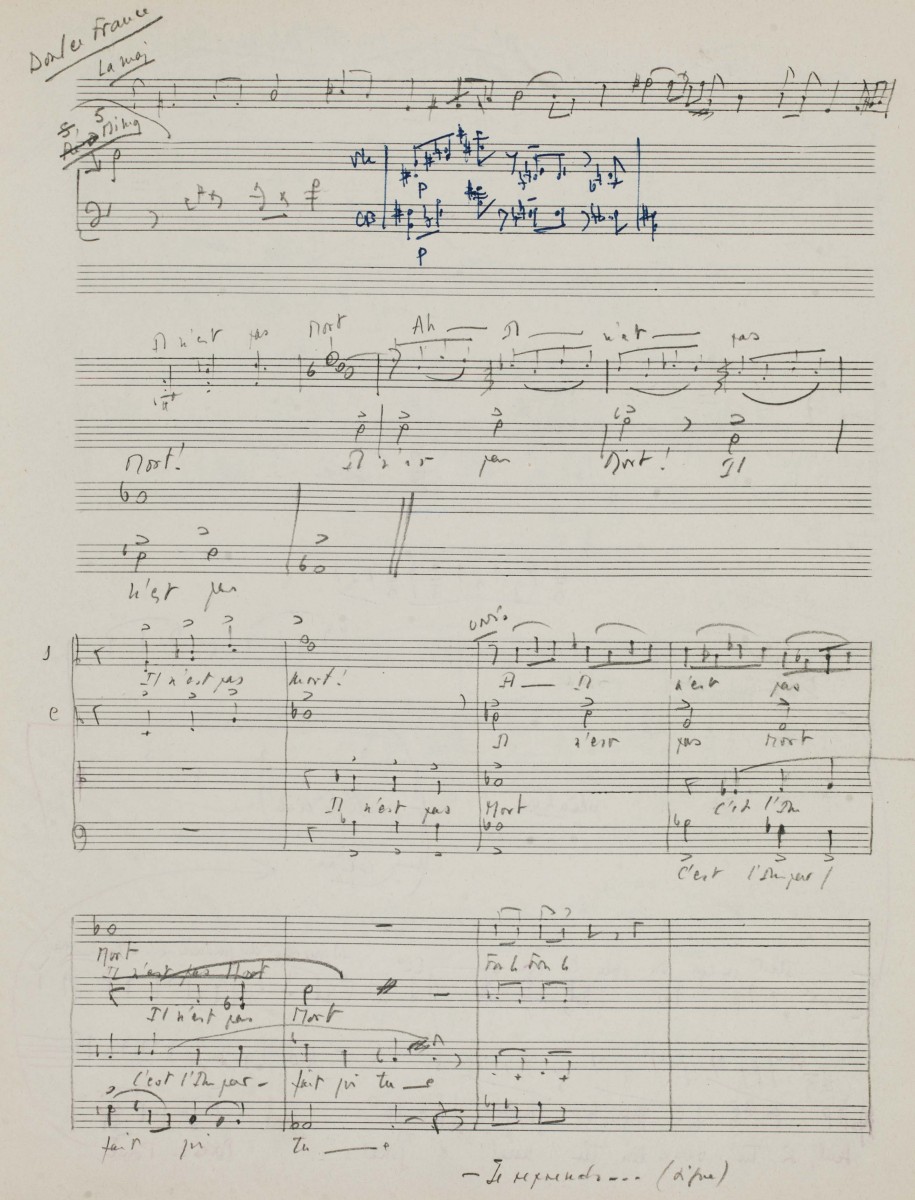 Douce France
La maj
Vle
CB
Il n'est pas Mort Ah Il n'est pas
Mort! Il n'est pas Mort! Il
n'est pas
unis
S
Il n'est pas Mort! Il Il n'est pas
C
Il n'est pas Mort
Il n'est pas Mort C'est l'Im
C'est l'Impar
Mort
Il n'est pas Mort
Il n'est pas Mort
C'est l'Im par - fait qui tu e
fait qui tu e
- Je reprends... (signe)